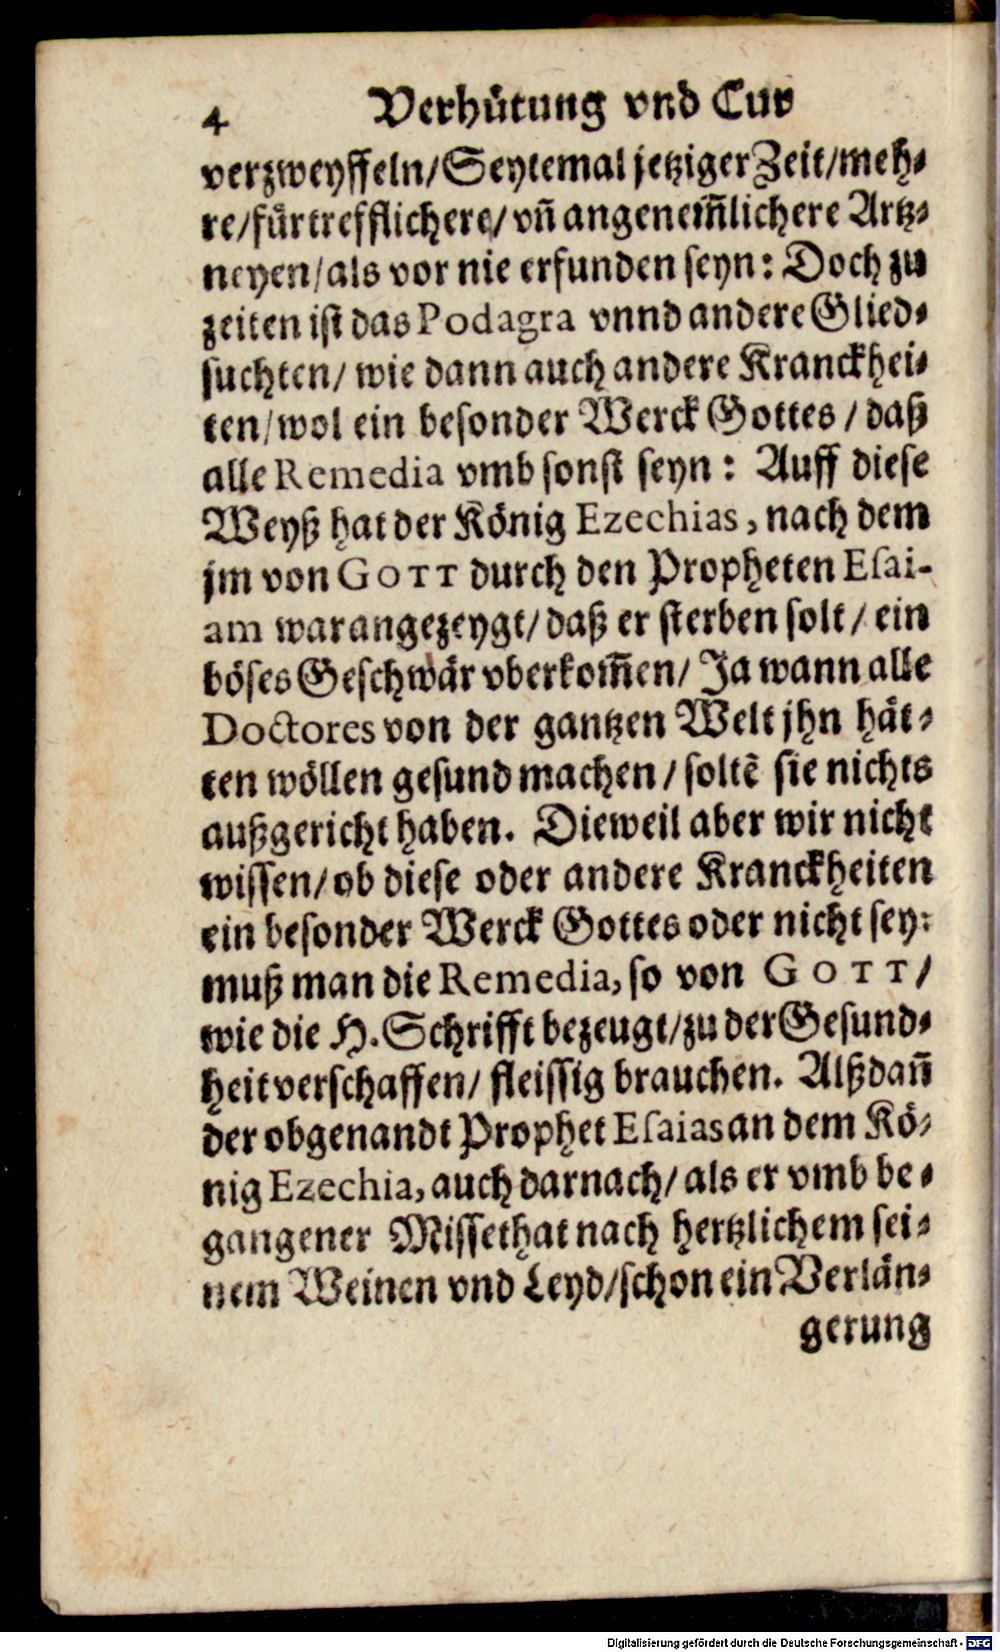 4 Verhütung vnd Cur
verzweyffeln/Seytemal jetziger Zeit/meh-
re/fürtrefflichere/vñ angenem̃lichere Artz-
neyen/als vor nie erfunden seyn: Doch zu
zeiten ist das Podagra vnnd andere Glied-
suchten/ wie dann auch andere Kranckhei-
ten/wol ein besonder Werck Gottes / daß
alle Remedia vmb sonst seyn: Auff diese
Weyß hat der König Ezechias, nach dem
jm von GOTT durch den Propheten Esai-
am war angezeygt/ daß er sterben solt / ein
böses Geschwär vberkom̃en/ Ja wann alle
Doctores von der gantzen Welt jhn hät-
ten wöllen gesund machen / soltẽ sie nichts
außgericht haben. Dieweil aber wir nicht
wissen/ob diese oder andere Kranckheiten
ein besonder Werck Gottes oder nicht sey:
muß man die Remedia, so von GOTT/
wie die H. Schrifft bezeugt/zu der Gesund-
heit verschaffen/ fleissig brauchen. Alß dañ
der obgenandt Prophet Esaias an dem Kö-
nig Ezechia, auch darnach/ als er vmb be-
gangener Missethat nach hertzlichem sei-
nem Weinen vnd Leyd/schon ein Verlän-
gerung
Digitalisierung gefördert durch die Deutsche Forschungsgemeinschaft - DFG